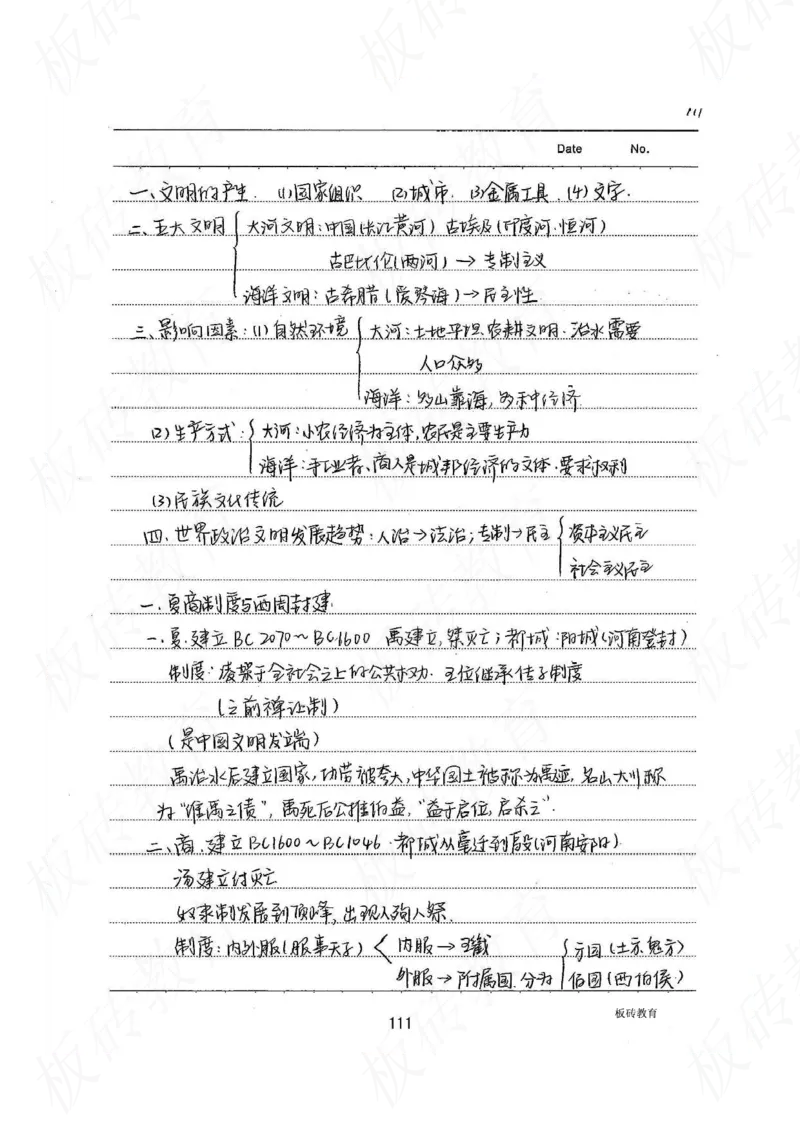 111
Date No.
一、文明的产生. (1)国家组织 (2)城市. (3)金属工具. (4)文字.
二、五大文明 大河文明:中国(长江黄河) 古埃及(印度河·恒河)
古巴比伦(两河) → 专制主义
海洋文明:古希腊(爱琴海)→民主性
三、影响因素:(1)自然环境 大河:土地平坦.农耕文明.治水需要
人口众多
海洋:多山靠海,多种经济
(2)生产方式: 大河:小农经济为主体,农民是主要生产力
海洋:手工业者、商人是城邦经济的主体.要求权利
(3)民族文化传统
四、世界政治文明发展趋势:人治→法治;专制→民主 资本主义民主
社会主义民主
一.夏商制度与西周封建.
一.夏.建立BC2070~BC1600 禹建立,桀灭亡;都城:阳城(河南登封)
制度:凌架于全社会之上的公共权力. 王位继承传子制度
(之前禅让制)
(是中国文明发端)
禹治水后建立国家,功劳被夸大,中华国土被称为禹迹,名山大川称
为“维禹之绩”,禹死后公推伯益,“益干启位,启杀之”.
二、商.建立BC1600~BC1046.都城从亳迁到殷(河南安阳)
汤建立纣灭亡
奴隶制发展到顶峰,出现人殉人祭.
制度:内外服(服事天子) 内服→王畿 方国(土方.鬼方)
外服→附属国.分为 伯国(西伯侯)
111
板砖教育
板砖教育